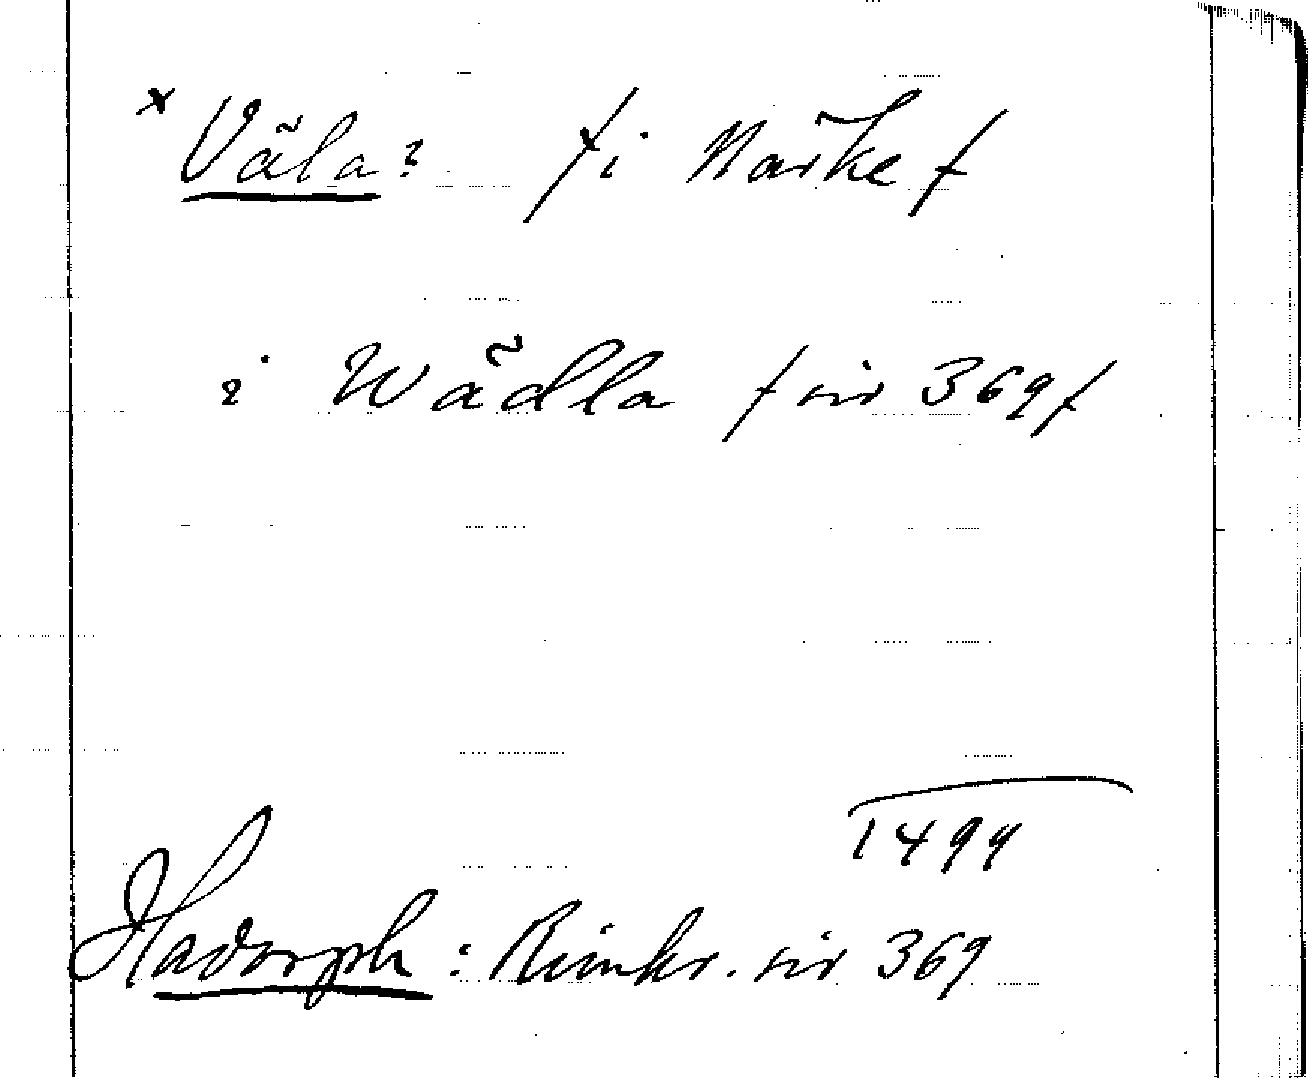 × Väla? / i Närke /
i Wädla / sid 369 /
1499
Hadorph: Rimkr. sid 369